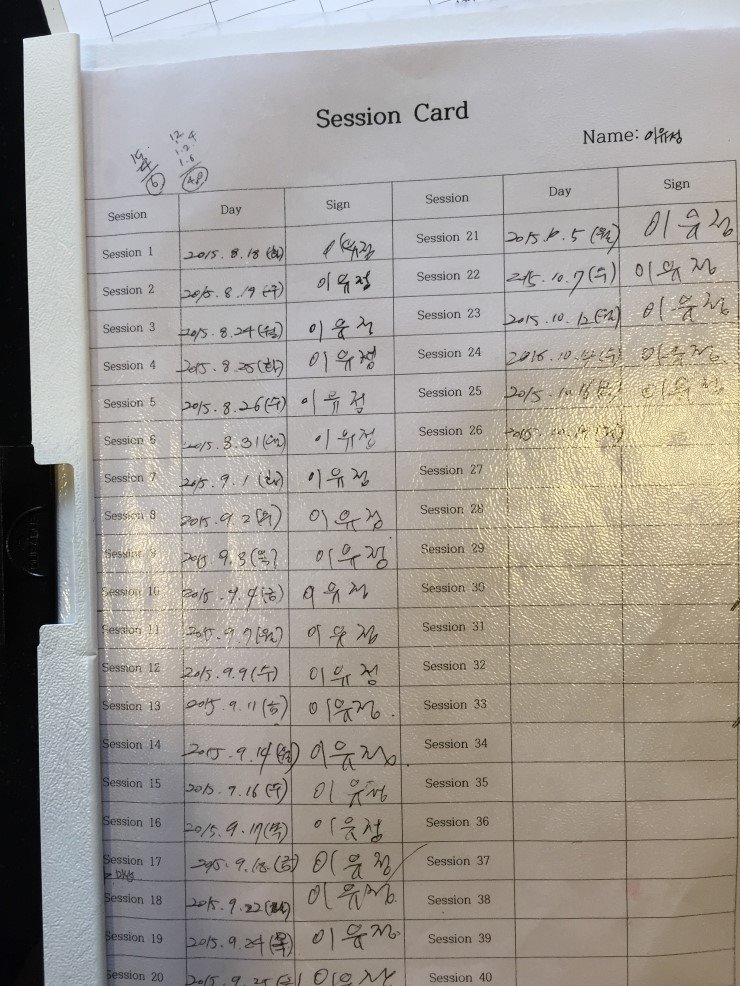 Session Card
Name: 이유정
15.
4
6
12
1.2.4
1.6
48
Session Day Sign Session Day Sign
Session 1 2015. 8. 18 (화) 이유정 Session 21 2015. 10. 5 (월) 이유정
Session 2 2015. 8. 19 (수) 이유정 Session 22 2015. 10. 7 (수) 이유정
Session 3 2015. 8. 24 (월) 이유정 Session 23 2015. 10. 12 (월) 이유정
Session 4 2015. 8. 25 (화) 이유정 Session 24 10. 14 (수) 이유정
Session 5 2015. 8. 26 (수) 이유정 Session 25 2015. 10. 이유정
Session 6 2015. 8. 31 (월) 이유정 Session 26 2015. 10.
Session 7 2015. 9. 1 (화) 이유정 Session 27
Session 8 2015. 9. 2 (수) 이유정 Session 28
Session 9 2015 9. 3 (목) 이유정 Session 29
Session 10 2015. 9. 4 (금) 이유정 Session 30
Session 11 2015. 9. 7 (월) 이유정 Session 31
Session 12 2015. 9. 9 (수) 이유정 Session 32
Session 13 2015. 9. 11 (금) 이유정. Session 33
Session 14 2015. 9. 14 (월) 이유정. Session 34
Session 15 2015. 9. 16 (수) 이유정 Session 35
Session 16 2015. 9. 17 (목) 이유정 Session 36
Session 17 2015. 9. 18 (금) 이유정 Session 37
Session 18 2015. 9. 22 이유정. Session 38
Session 19 2015. 9. 24 (목) 이유정. Session 39
Session 20 2015. 9. 25 (금) 이유정 Session 40